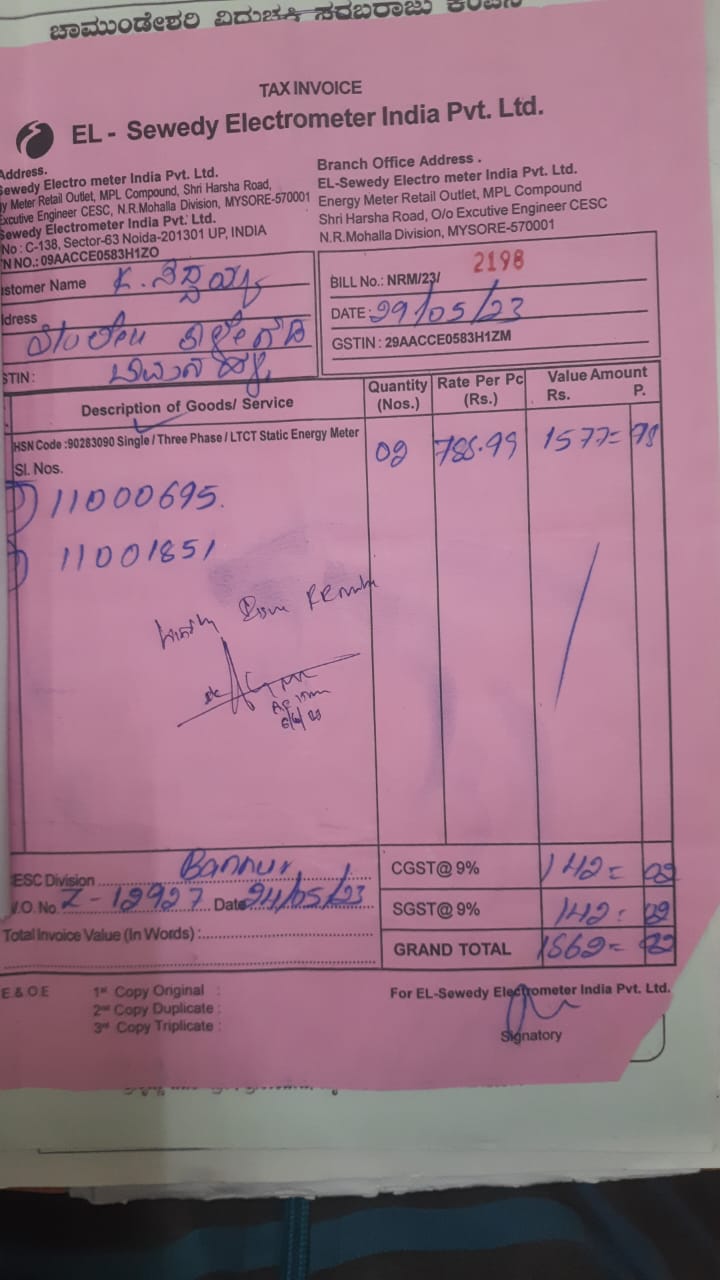 ಚಾಮುಂಡೇಶ್ವರಿ ವಿದ್ಯುಚ್ಛಕ್ತಿ ಸರಬರಾಜು
TAX INVOICE
EL - Sewedy Electrometer India Pvt. Ltd.
Address.
Sewedy Electro meter India Pvt. Ltd.
y Meter Retail Outlet, MPL Compound, Shri Harsha Road,
Excutive Engineer CESC, N.R.Mohalla Division, MYSORE-570001
Sewedy Electrometer India Pvt. Ltd.
No : C-138, Sector-63 Noida-201301 UP, INDIA
N NO.: 09AACCE0583H1ZO
Branch Office Address .
EL-Sewedy Electro meter India Pvt. Ltd.
Energy Meter Retail Outlet, MPL Compound
Shri Harsha Road, O/o Excutive Engineer CESC
N.R.Mohalla Division, MYSORE-570001
stomer Name
ddress
STIN :
BILL No.: NRM/23/ 2198
DATE : 29/05/23
GSTIN : 29AACCE0583H1ZM
Description of Goods/ Service Quantity (Nos.) Rate Per Pc (Rs.) Value Amount Rs. P.
HSN Code :90283090 Single / Three Phase / LTCT Static Energy Meter 02 788.99 1577= 98
Sl. Nos.
1) 11000695.
2) 11001851
ESC Division Bannur
V.O. No. Z-12927 Date 24/05/23
Total Invoice Value (In Words) :
CGST@ 9% 142= 02
SGST@ 9% 142= 02
GRAND TOTAL
E & O E
1st Copy Original :
2nd Copy Duplicate :
3rd Copy Triplicate :
For EL-Sewedy Electrometer India Pvt. Ltd.
Signatory